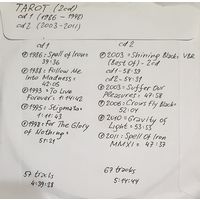 TAROT (2cd)
cd 1 (1986 - 1998)
cd 2 (2003-2011)
cd 1
① 1986: Spell of Iron: 39:36
① 1988: Follow Me Into Madness: 42:05
① 1993: To Live Forever: 1:14:42
① 1995: Stigmata: 1:11:43
① 1998: For The Glory of Nothing: 51:21
57 tracks
4:39:28
cd 2
① 2003: Shining Black: VBR
(Best of) - 2cd
cd1 - 58:59
cd2 - 54:31
① 2003: Suffer Our Pleasures: 47:58
① 2006: Crows Fly Black: 52:04
① 2010: Gravity of Light = 53:53
① 2011: Spell Of Iron MMXI = 47:37
67 tracks
5:14:44